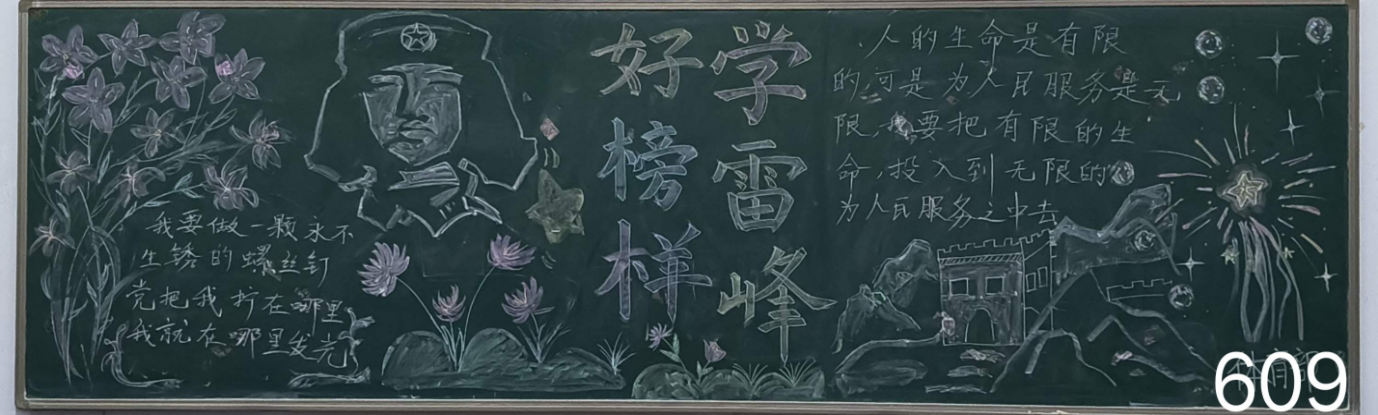 我要做一颗永不
生锈的螺丝钉
党把我拧在哪里
我就在哪里发光
学雷峰
好榜样
人的生命是有限
的,可是为人民服务是无
限,我要把有限的生
命,投入到无限的
为人民服务之中去
609